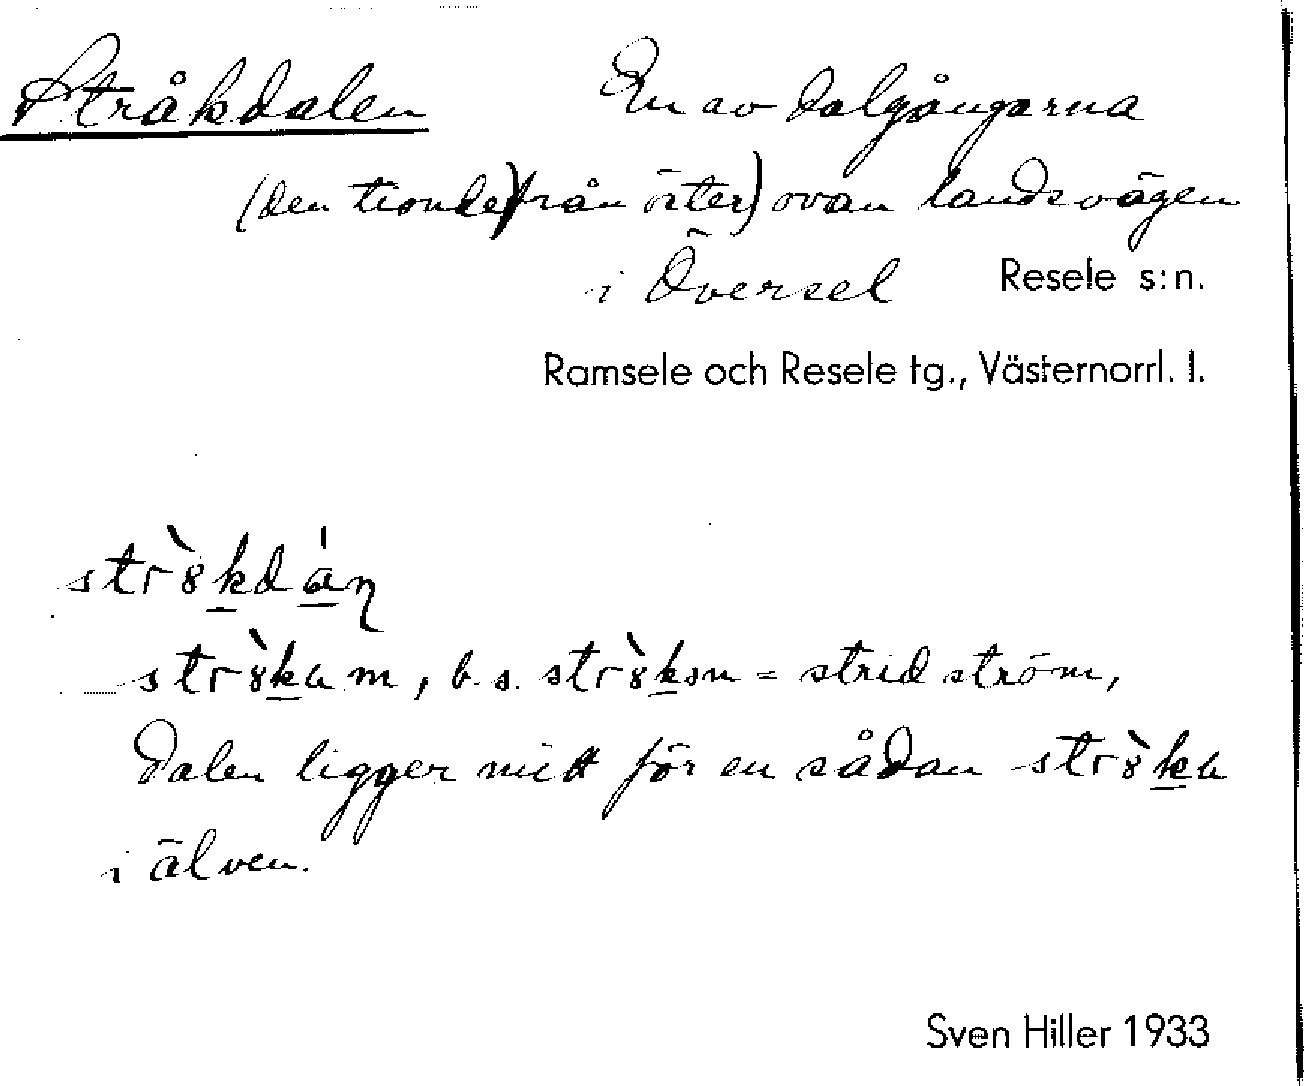 Stråkdalen En av dalgångarna
(den tionde) från öster) ovan landsvägen
i Översel Resele s:n.
Ramsele och Resele tg., Västernorrl. l.
strò̀kdán
strò̀ka m, b. s. strò̀kən = strid ström,
Dalen ligger mitt för en sådan strò̀ka
i älven.
Sven Hiller 1933